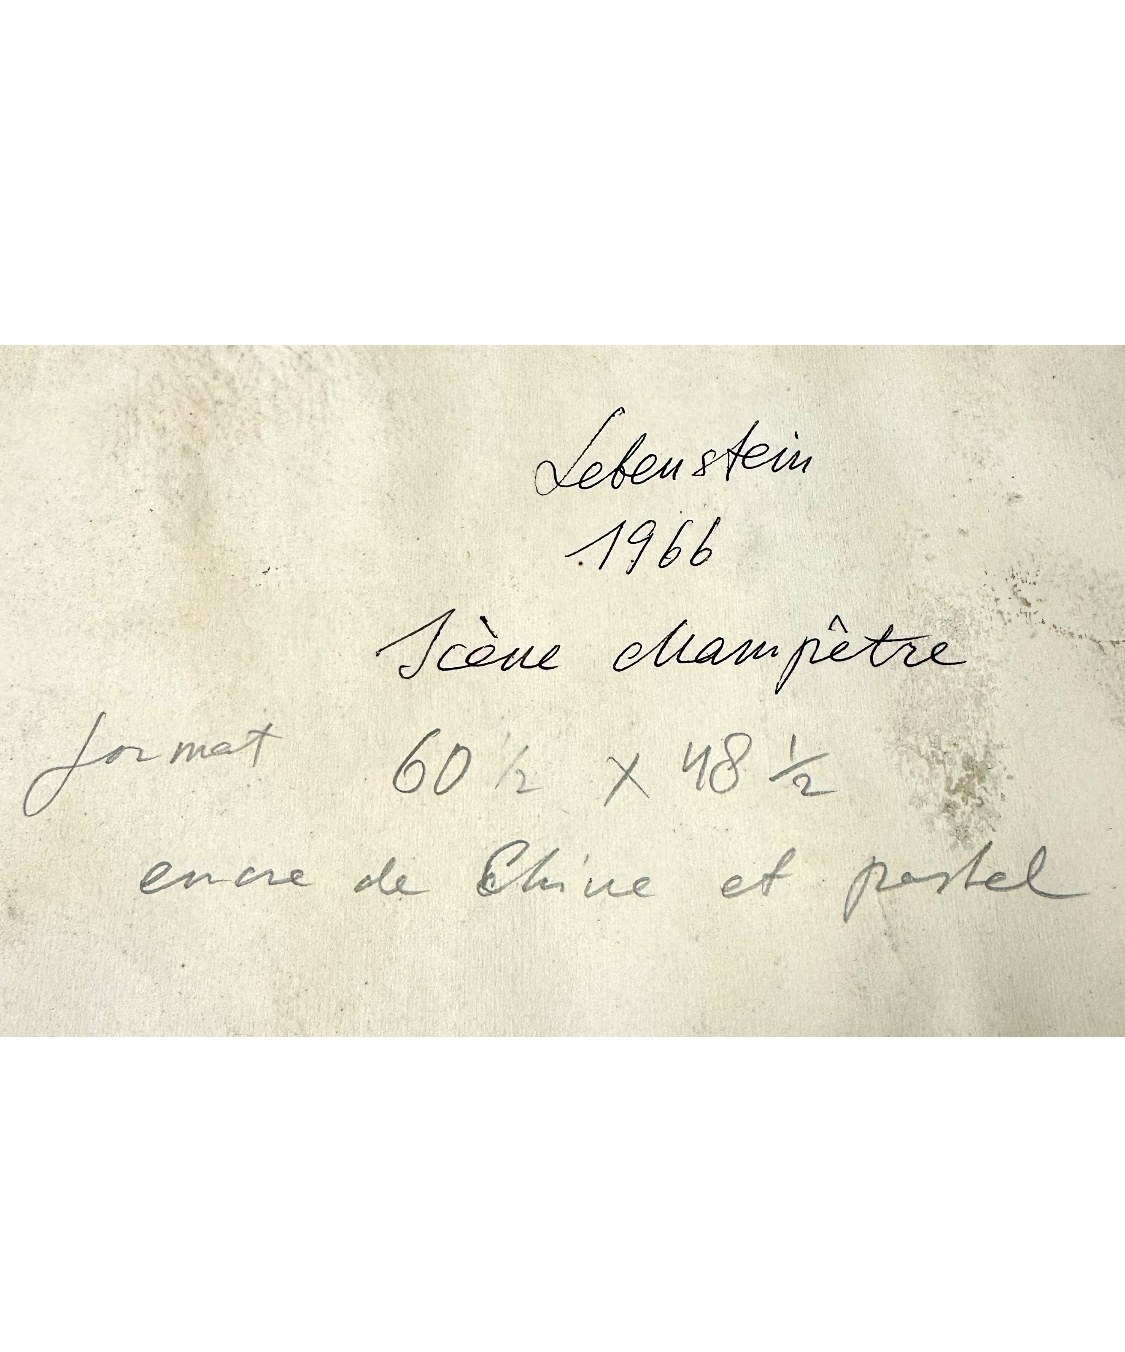 Lebenstein
1966
Scène champêtre
format 60 1/2 x 48 1/2
encre de Chine et pastel